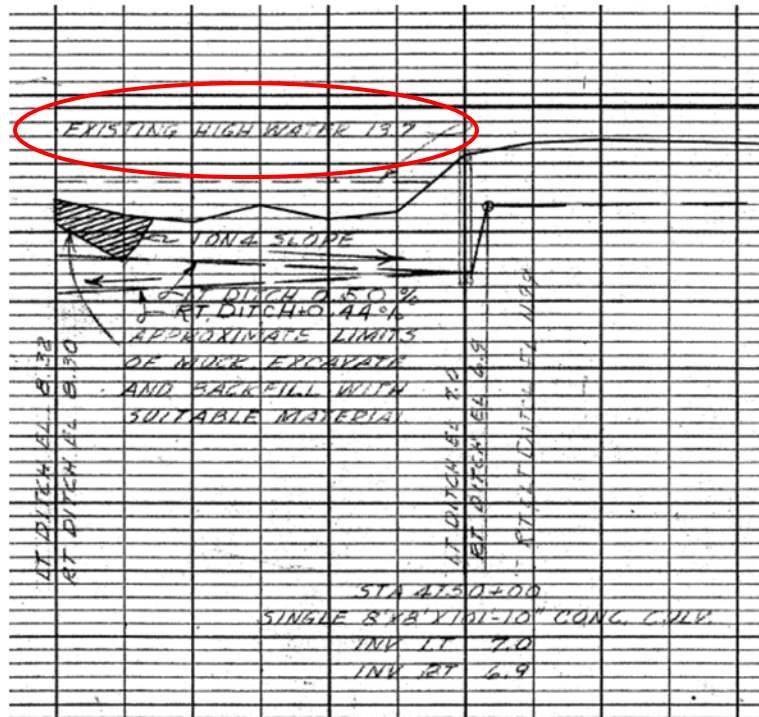 EXISTING HIGH WATER 13.7
1 ON 4 SLOPE
LT DITCH 0.50 %
RT. DITCH +0.44 %
APPROXIMATE LIMITS
OF MUCK EXCAVATE
AND BACKFILL WITH
SUITABLE MATERIAL
LT DITCH EL. 8.32
RT DITCH EL 8.30
LT DITCH EL 7.0
RT DITCH EL 6.9
RT & LT DITCH EL
STA 4750+00
SINGLE 8'X8'X101'-10" CONC. CULV.
INV LT 7.0
INV RT 6.9